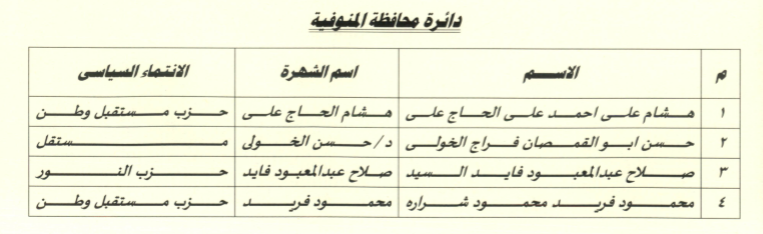 دائرة محافظة المنوفية
م الاسم اسم الشهرة الانتماء السياسى
١ هشام على احمد على الحاج على هشام الحاج على حزب مستقبل وطن
٢ حسن ابو القمصان فراج الخولى د/حسن الخولى مستقل
٣ صلاح عبدالمعبود فايد السيد صلاح عبدالمعبود فايد حزب النور
٤ محمود فريد محمود شراره محمود فريد حزب مستقبل وطن